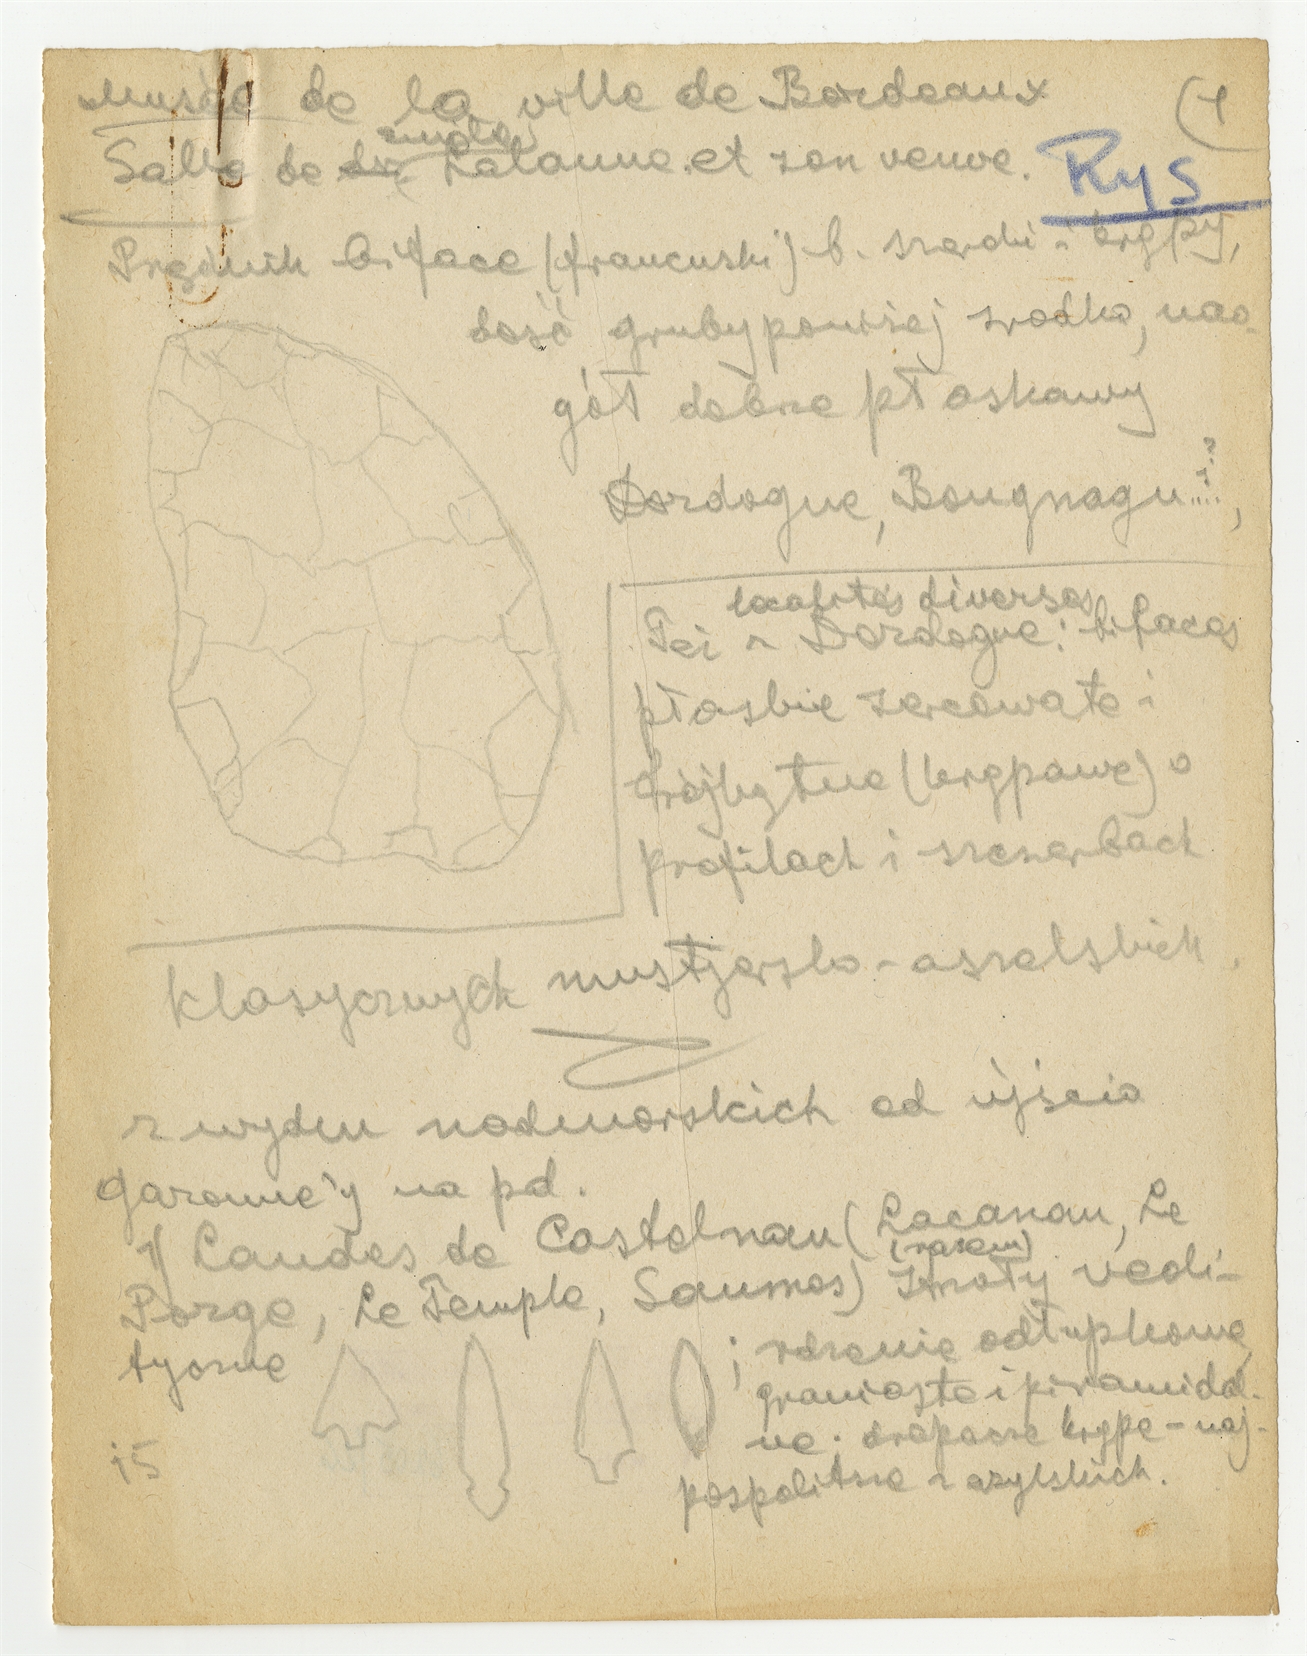 Musée de la ville de Bordeaux (1
Salle de dr. Emila Lalanne et son veuve. Rys
Prądnik biface (francuski) b. szeroki i krępy,
dość gruby poniżej środka, nao-
gół dobrze płaskawy
Dordogne, Bougnagu...?,
localités diverses
Też z Dordogne: bifaces
płaskie sercowate i
trójkątne (krępawe) o
profilach i szczerbach
klasycznych mustjersko-aszelskich.
z wydm nadmorskich od ujścia
Garonne'y na pd.
1) Landes de Castelnau (Lacanau, Le
Porge, Le Temple, Saumos) (razem) groty neoli-
tyczne
; rdzenie odłupkowe
graniaste i piramidal-
ne; drapacze krępe - naj-
pospolitsze z azylskich.
i5